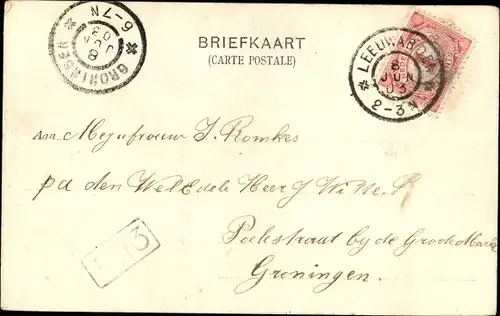 GRONINGEN
8
JUN
03
6-7N
BRIEFKAART
(CARTE POSTALE)
LEEUWARDEN
8
JUN
03
2-3N
Aan Mejufrouw J. Romkes
pa den WelEdele Heer J Witte
Poelestraat bij de Groote Markt
Groningen.
3